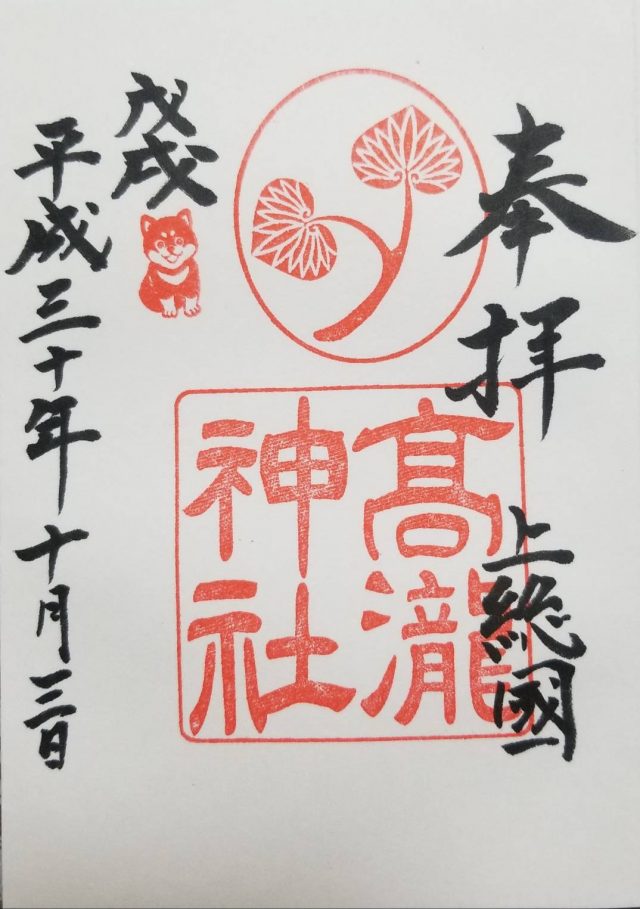 奉拝
上総國一
髙瀧
神社
戊戌
平成三十年十月三日